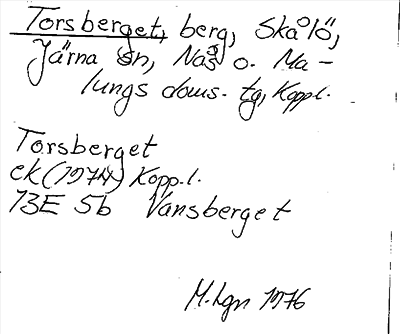 Torsberget, berg, Skålö,
Järna sn, Nås o. Ma-
lungs doms. tg, Kopp.l.
Torsberget
ek (1974) Kopp.l.
13E 5b Vansberget
M.Lgn 1976